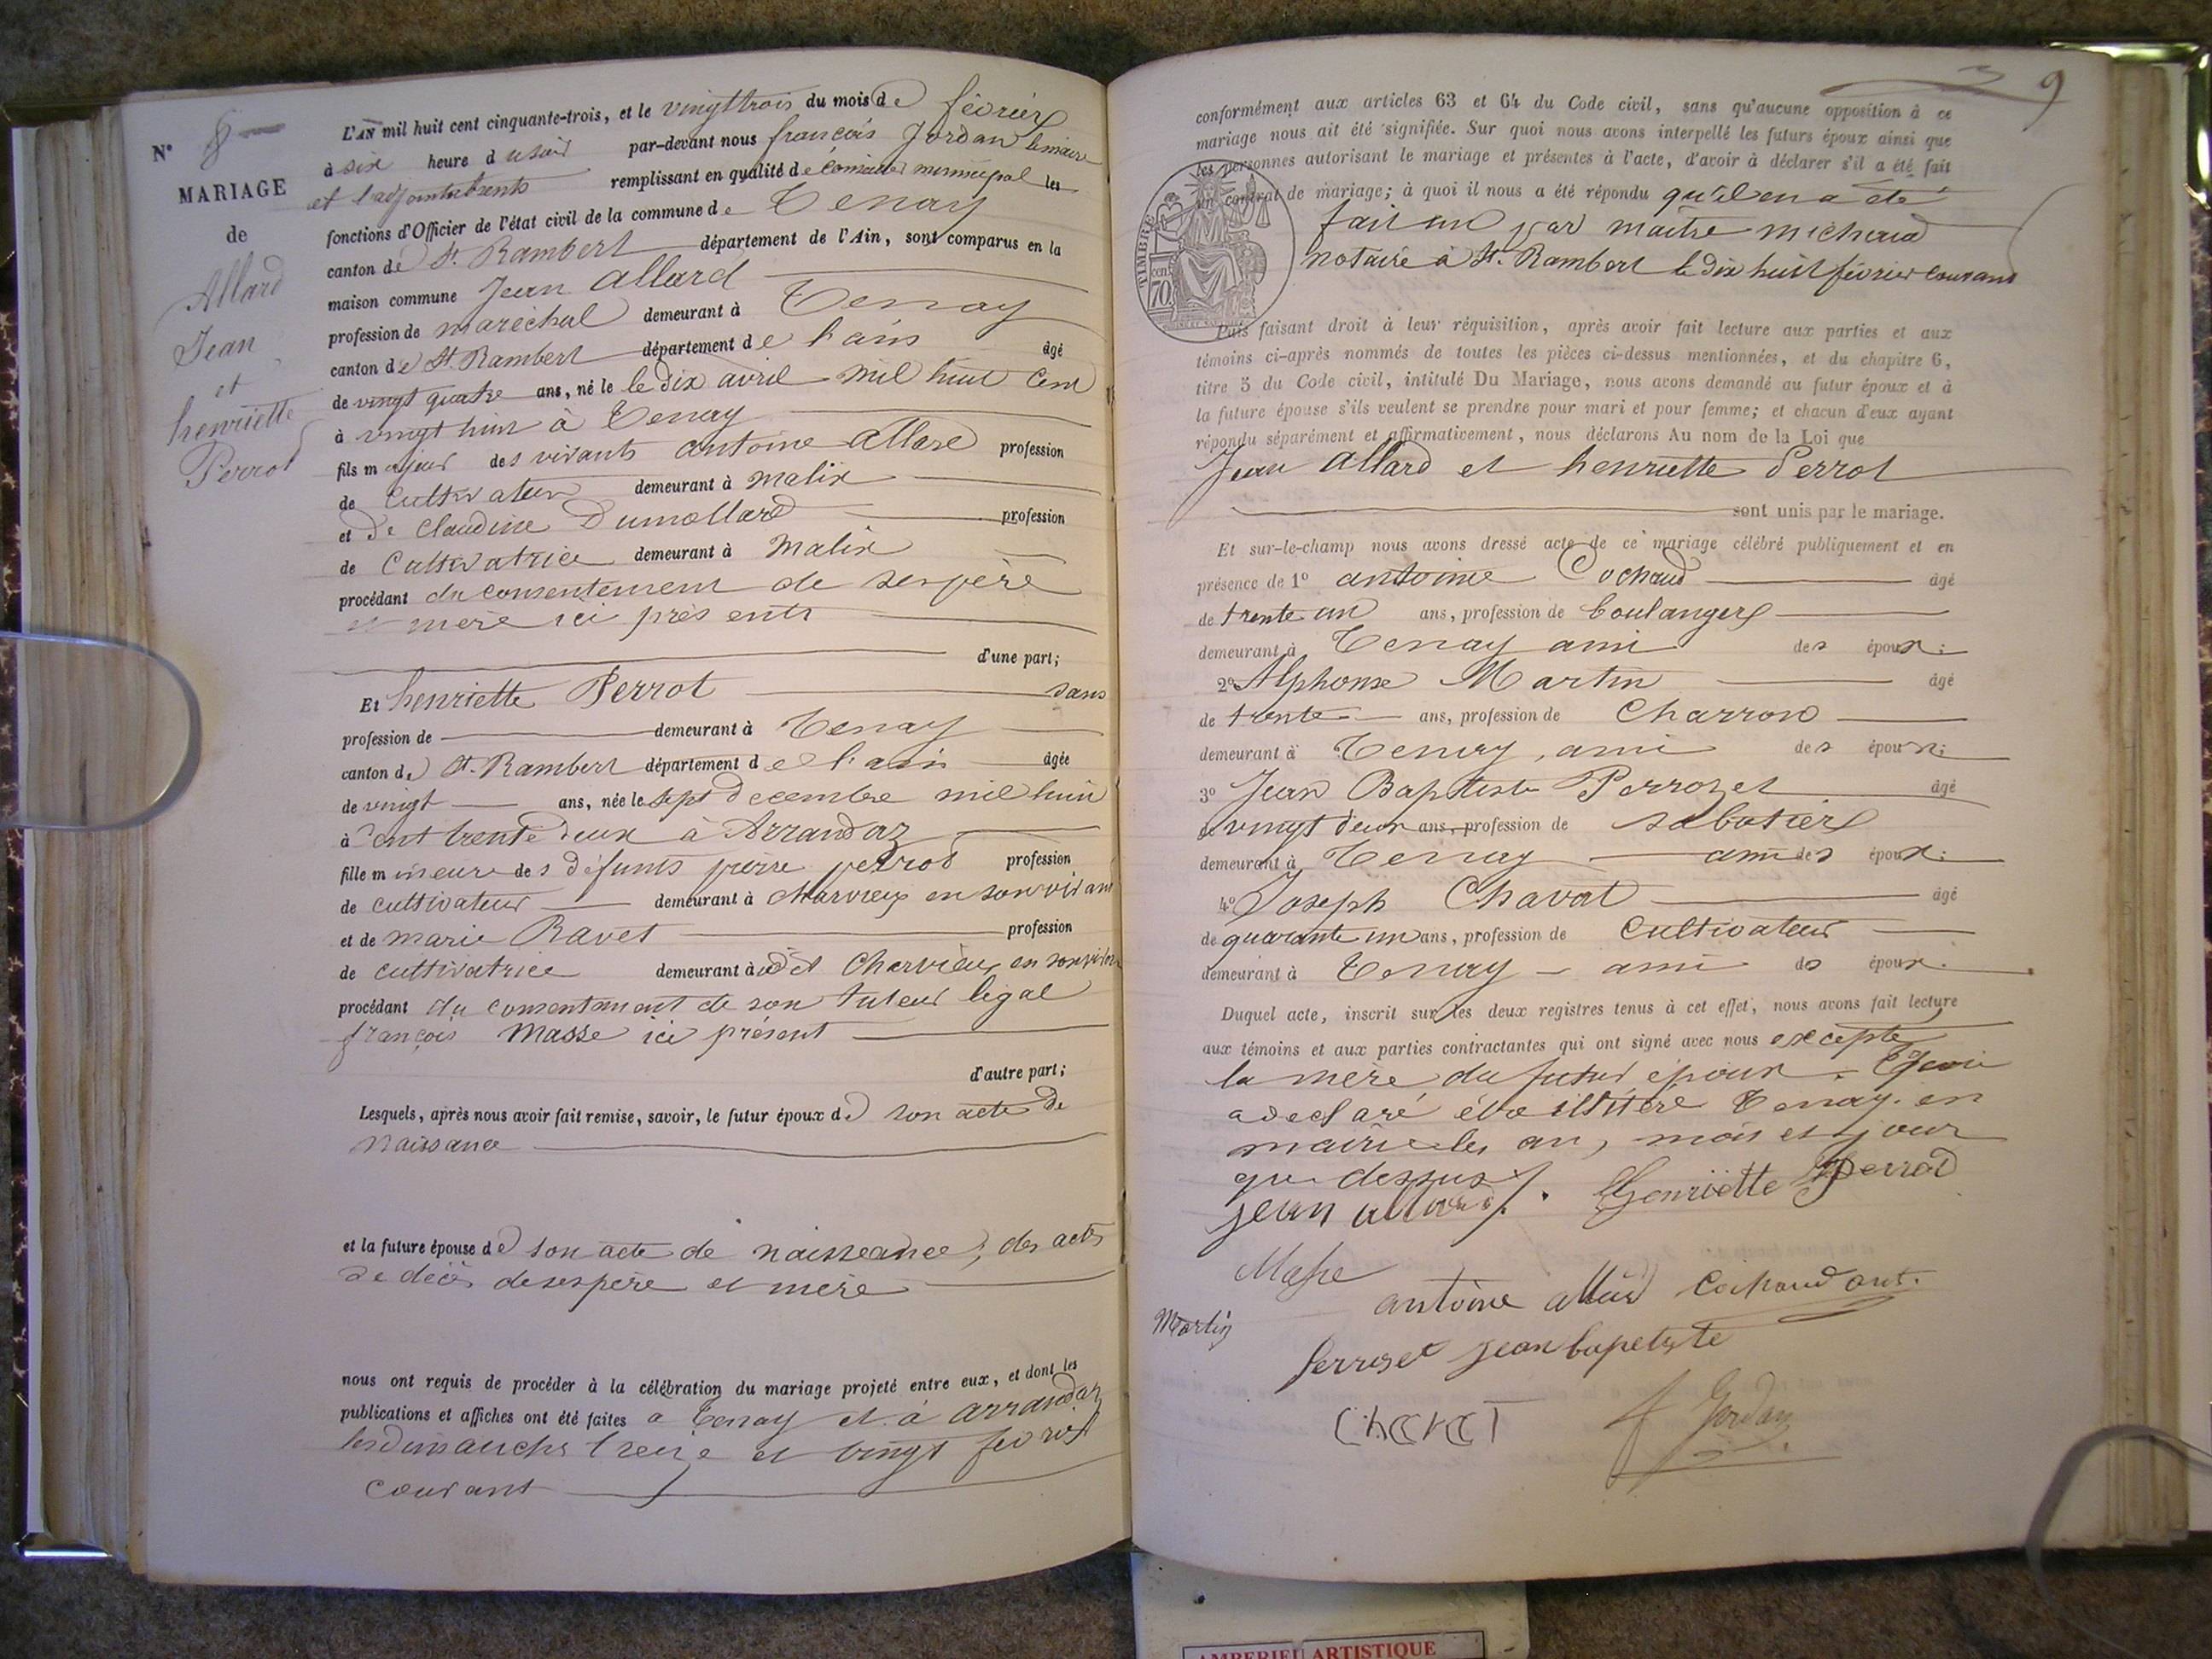 N° 8
MARIAGE
de
Allard
Jean
et
henriette
Perrot
L'AN mil huit cent cinquante-trois, et le vingttrois du mois de février
à six heure du soir par-devant nous françois Jordan lemaire
et l'adjoint absents remplissant en qualité de municipal les
fonctions d'Officier de l'état civil de la commune de Tenay
canton de St. Rambert département de l'Ain, sont comparus en la
maison commune Jean allard
profession de maréchal demeurant à Tenay
canton de St. Rambert département de l'ain âgé
de vingt quatre ans, né le le dix avril mil huit cent
à vingt huit à Tenay
fils majeur des vivants antoine allard profession
de Cultivateur demeurant à malix
et de Claudine Dumollard profession
de Cultivatrice demeurant à malix
procédant du consentement de ses père
et mère ici présents
d'une part;
Et henriette Perrot sans
profession de demeurant à Tenay
canton de St. Rambert département de l'ain âgée
de vingt ans, née le sept decembre mil huit
à Cent trente deux à Arrandaz
fille mineure des défunts pierre perrot profession
de cultivateur demeurant à Charvieux en son vivant
et de marie Ravet profession
de cultivatrice demeurant à Charvieux en son vivant
procédant du consentement de son tuteur légal
françois Masse ici présent
d'autre part;
Lesquels, après nous avoir fait remise, savoir, le futur époux de son acte de
naissance
et la future épouse de son acte de naisseance, des acts
de décès deses père et mère
nous ont requis de procéder à la célébration du mariage projeté entre eux, et dont les
publications et affiches ont été faites a Tenay et à arrandaz
les dimanches treize et vingt
courant
9
conformément aux articles 63 et 64 du Code civil, sans qu'aucune opposition à ce
mariage nous ait été signifiée. Sur quoi nous avons interpellé les futurs époux ainsi que
les personnes autorisant le mariage et présentes à l'acte, d'avoir à déclarer s'il a été fait
un contrat de mariage; à quoi il nous a été répondu qu'il en a été
fait un par maitre michaud
notaire à St. Rambert le dix huit février courant
TIMBRE
cen.
70
Puis faisant droit à leur réquisition, après avoir fait lecture aux parties et aux
témoins ci-après nommés de toutes les pièces ci-dessus mentionnées, et du chapitre 6,
titre 5 du Code civil, intitulé Du Mariage, nous avons demandé au futur époux et à
la future épouse s'ils veulent se prendre pour mari et pour femme; et chacun d'eux ayant
répondu séparément et affirmativement, nous déclarons Au nom de la Loi que
Jean allard et henriette Perrot
sont unis par le mariage.
Et sur-le-champ nous avons dressé acte de ce mariage célébré publiquement et en
présence de 1° antoine Cochaud âgé
de trente un ans, profession de boulanger
demeurant à Tenay ami des époux;
2° Alphonse Martin âgé
de trente ans, profession de Charron
demeurant à Tenay, ami des époux;
3° Jean Baptiste Perrozet âgé
de vingt deux ans, profession de sabotier
demeurant à Tenay ami des époux;
4° Joseph Chavat âgé
de quarante un ans, profession de Cultivateur
demeurant à Tenay ami des époux.
Duquel acte, inscrit sur les deux registres tenus à cet effet, nous avons fait lecture
aux témoins et aux parties contractantes qui ont signé avec nous excepté
la mère du futur époux
a declaré illitéré Tenay en
mairie les an, mois et jour
que dessus.
jean allard. Henriette Perrod
Masse
antoine allard Cochaud ant.
Martin
Perrozet jean bapetiste
ChavaT
f Jordan
AMBERIEU ARTISTIQUE